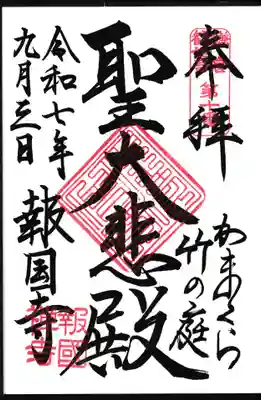 奉拝
かまくら
竹の庭
聖大悲殿
令和七年
九月三日
報国寺
報國